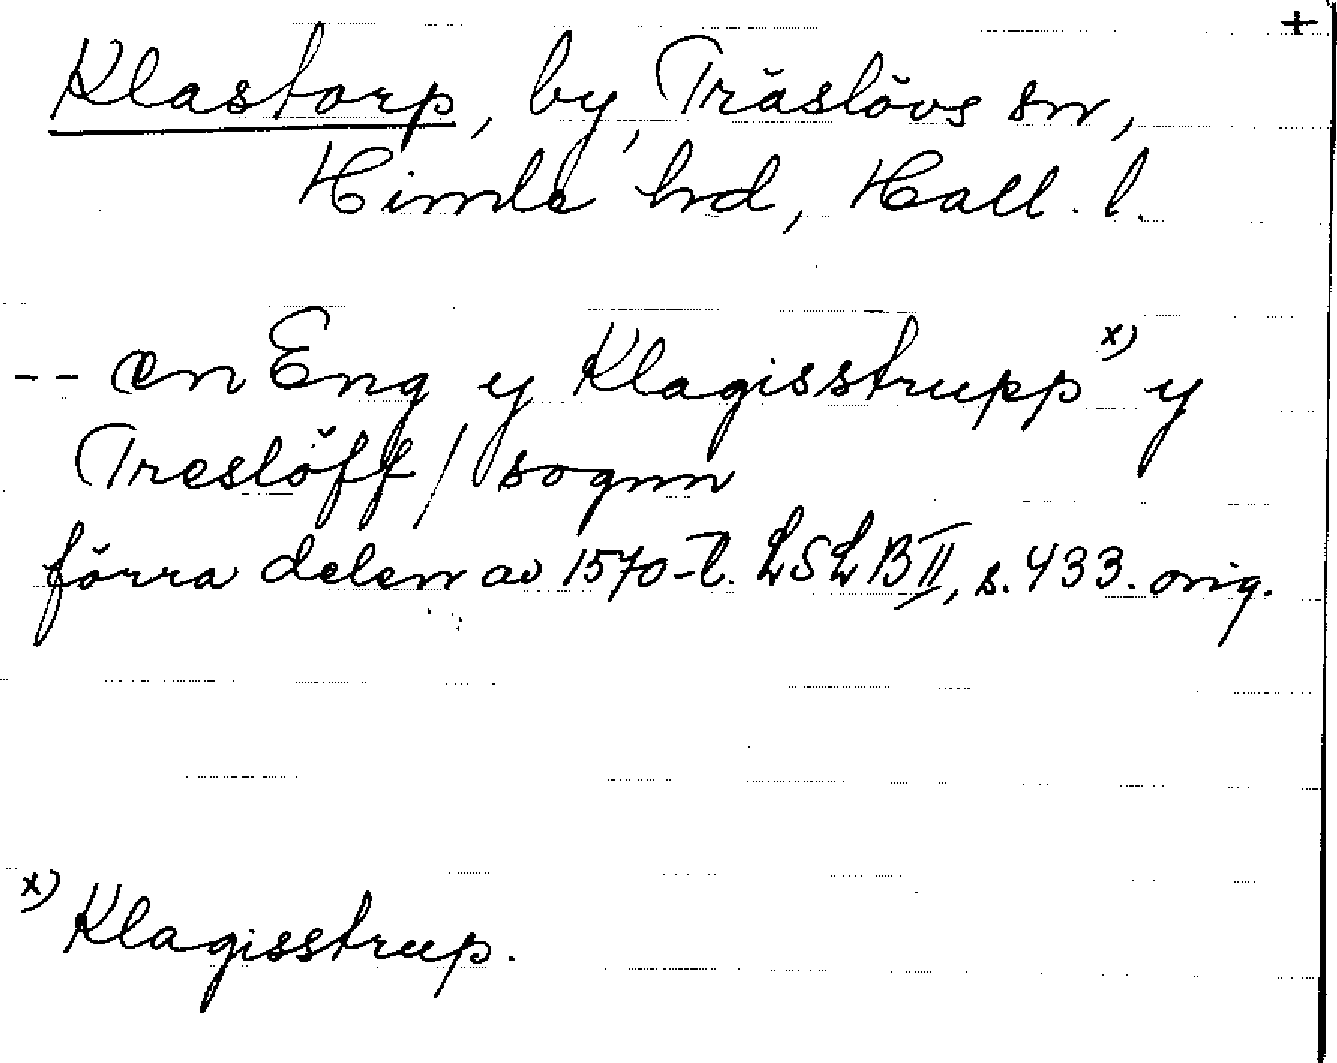 +
Klastorp, by, Träslövs sn,
Himle hd, Hall. l.
-- en Eng y Klagisstrupp x) y
Treslöff / sognn
förra delen av 1570-t. LSLB II, s. 433. orig.
x) Klagisstrup.